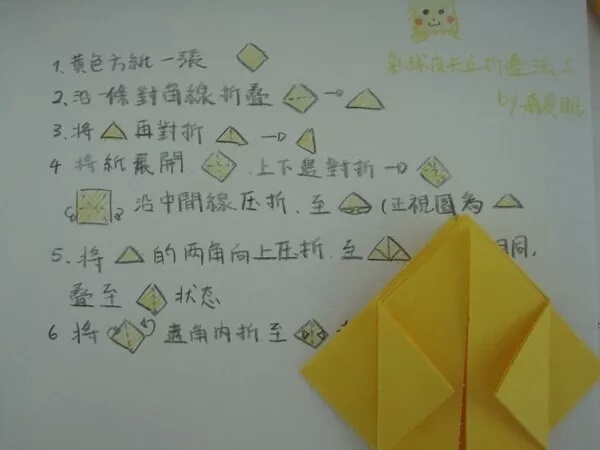 氣球皮卡丘折疊法1
by
1. 黃色方紙一張
2. 沿一條對角線折疊
3. 將 再對折
4 將紙展開. 上下邊對折
沿中間線压折. 至 (正視圖為
5. 將 的两角向上压折. 至 同,
疊至 状态
6 將 邊角内折至